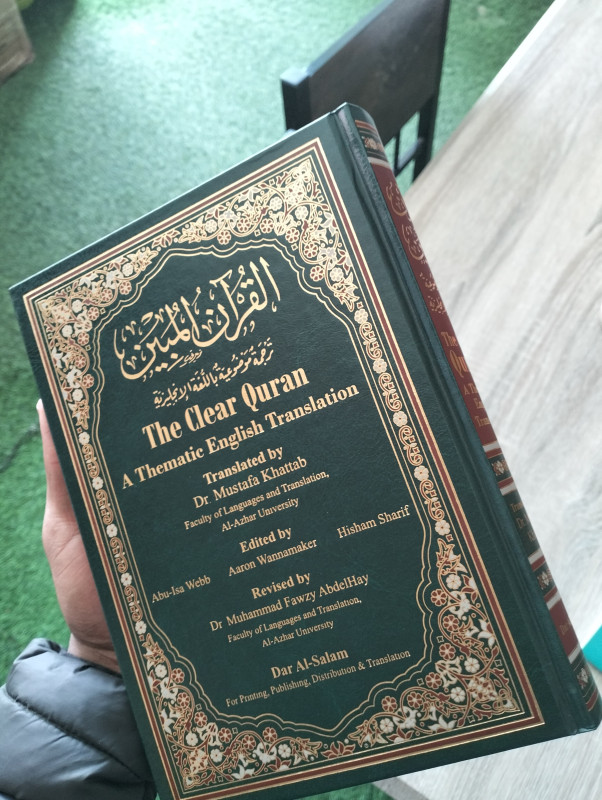 القرآن المبين
ترجمة موضوعية باللغة الإنجليزية
The Clear Quran
A Thematic English Translation
Translated by
Dr Mustafa Khattab
Faculty of Languages and Translation,
Al-Azhar University
Edited by
Abu-Isa Webb Aaron Wannamaker Hisham Sharif
Revised by
Dr Muhammad Fawzy AbdelHay
Faculty of Languages and Translation,
Al-Azhar University
Dar Al-Salam
For Printing, Publishing, Distribution & Translation
The